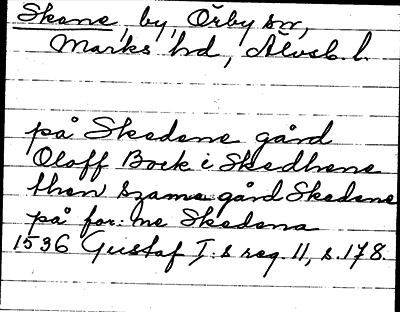 Skene, by, Örby sn,
Marks hd, Älvsb. l.
på Skedene gård
Oloff Bock i Skedhene
then szame gård Skedene
på for: ne Skedena
1536 Gustaf I:s reg. 11, s. 178.